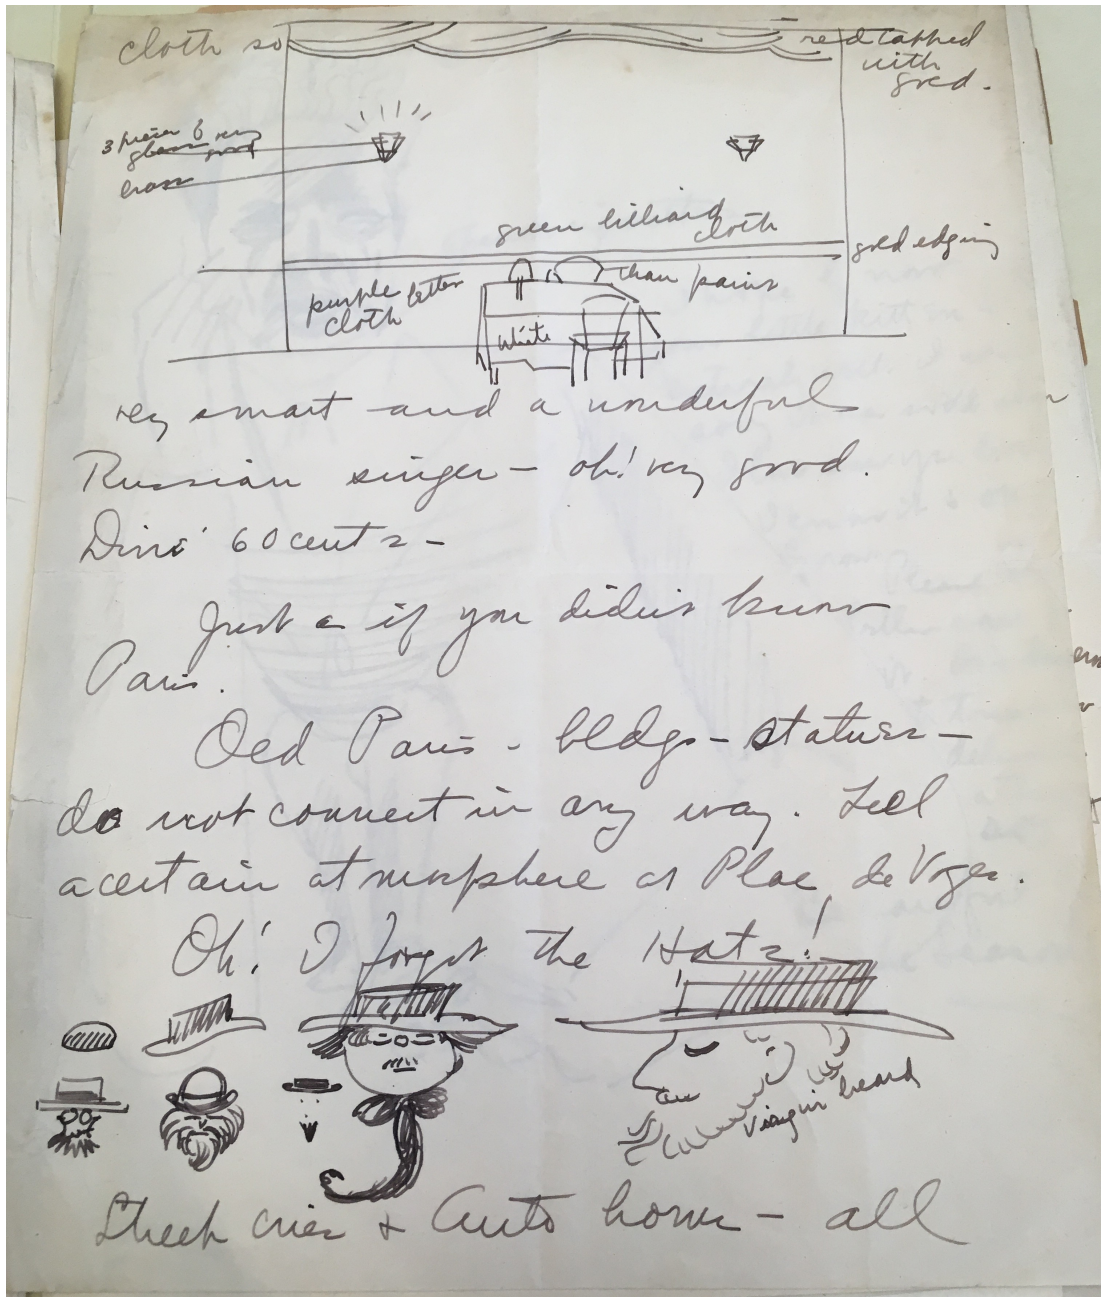 cloth so
red
with
gold.
3 pieces of very
glass good
brass
green billiard
cloth
gold edging
purple letter
cloth
chair pairs
white
very smart and a wonderful
Russian singer — oh! very good.
60 cents —
Just as if you didn't know
Paris.
Old Paris - bldgs - statues —
do not connect in any way. Feel
a certain atmosphere at Place de Voges.
Oh! I forgot the Hats!
Virgin beard
Street cries + Auto horns — all